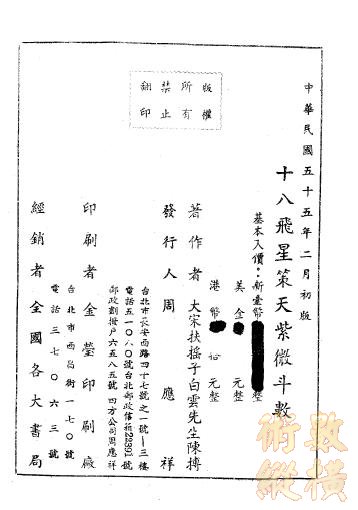 中華民國五十五年二月初版
十八飛星策天紫微斗數
基本入價：新臺幣 整
美金 元整
港幣 拾元整
版權所有
翻印禁止
著作者 大宋扶搖子白雲先生陳摶
發行人 周應祥
台北市長安西路四十七號之一號—三樓
電話五一〇八〇號台北郵政信箱22391號
郵政劃撥戶六五八五號 四方公司周應祥
印刷者 金瑩印刷廠
台北市西昌街一七〇號
電話三七〇六三號
經銷者 全國各大書局
數術縱橫